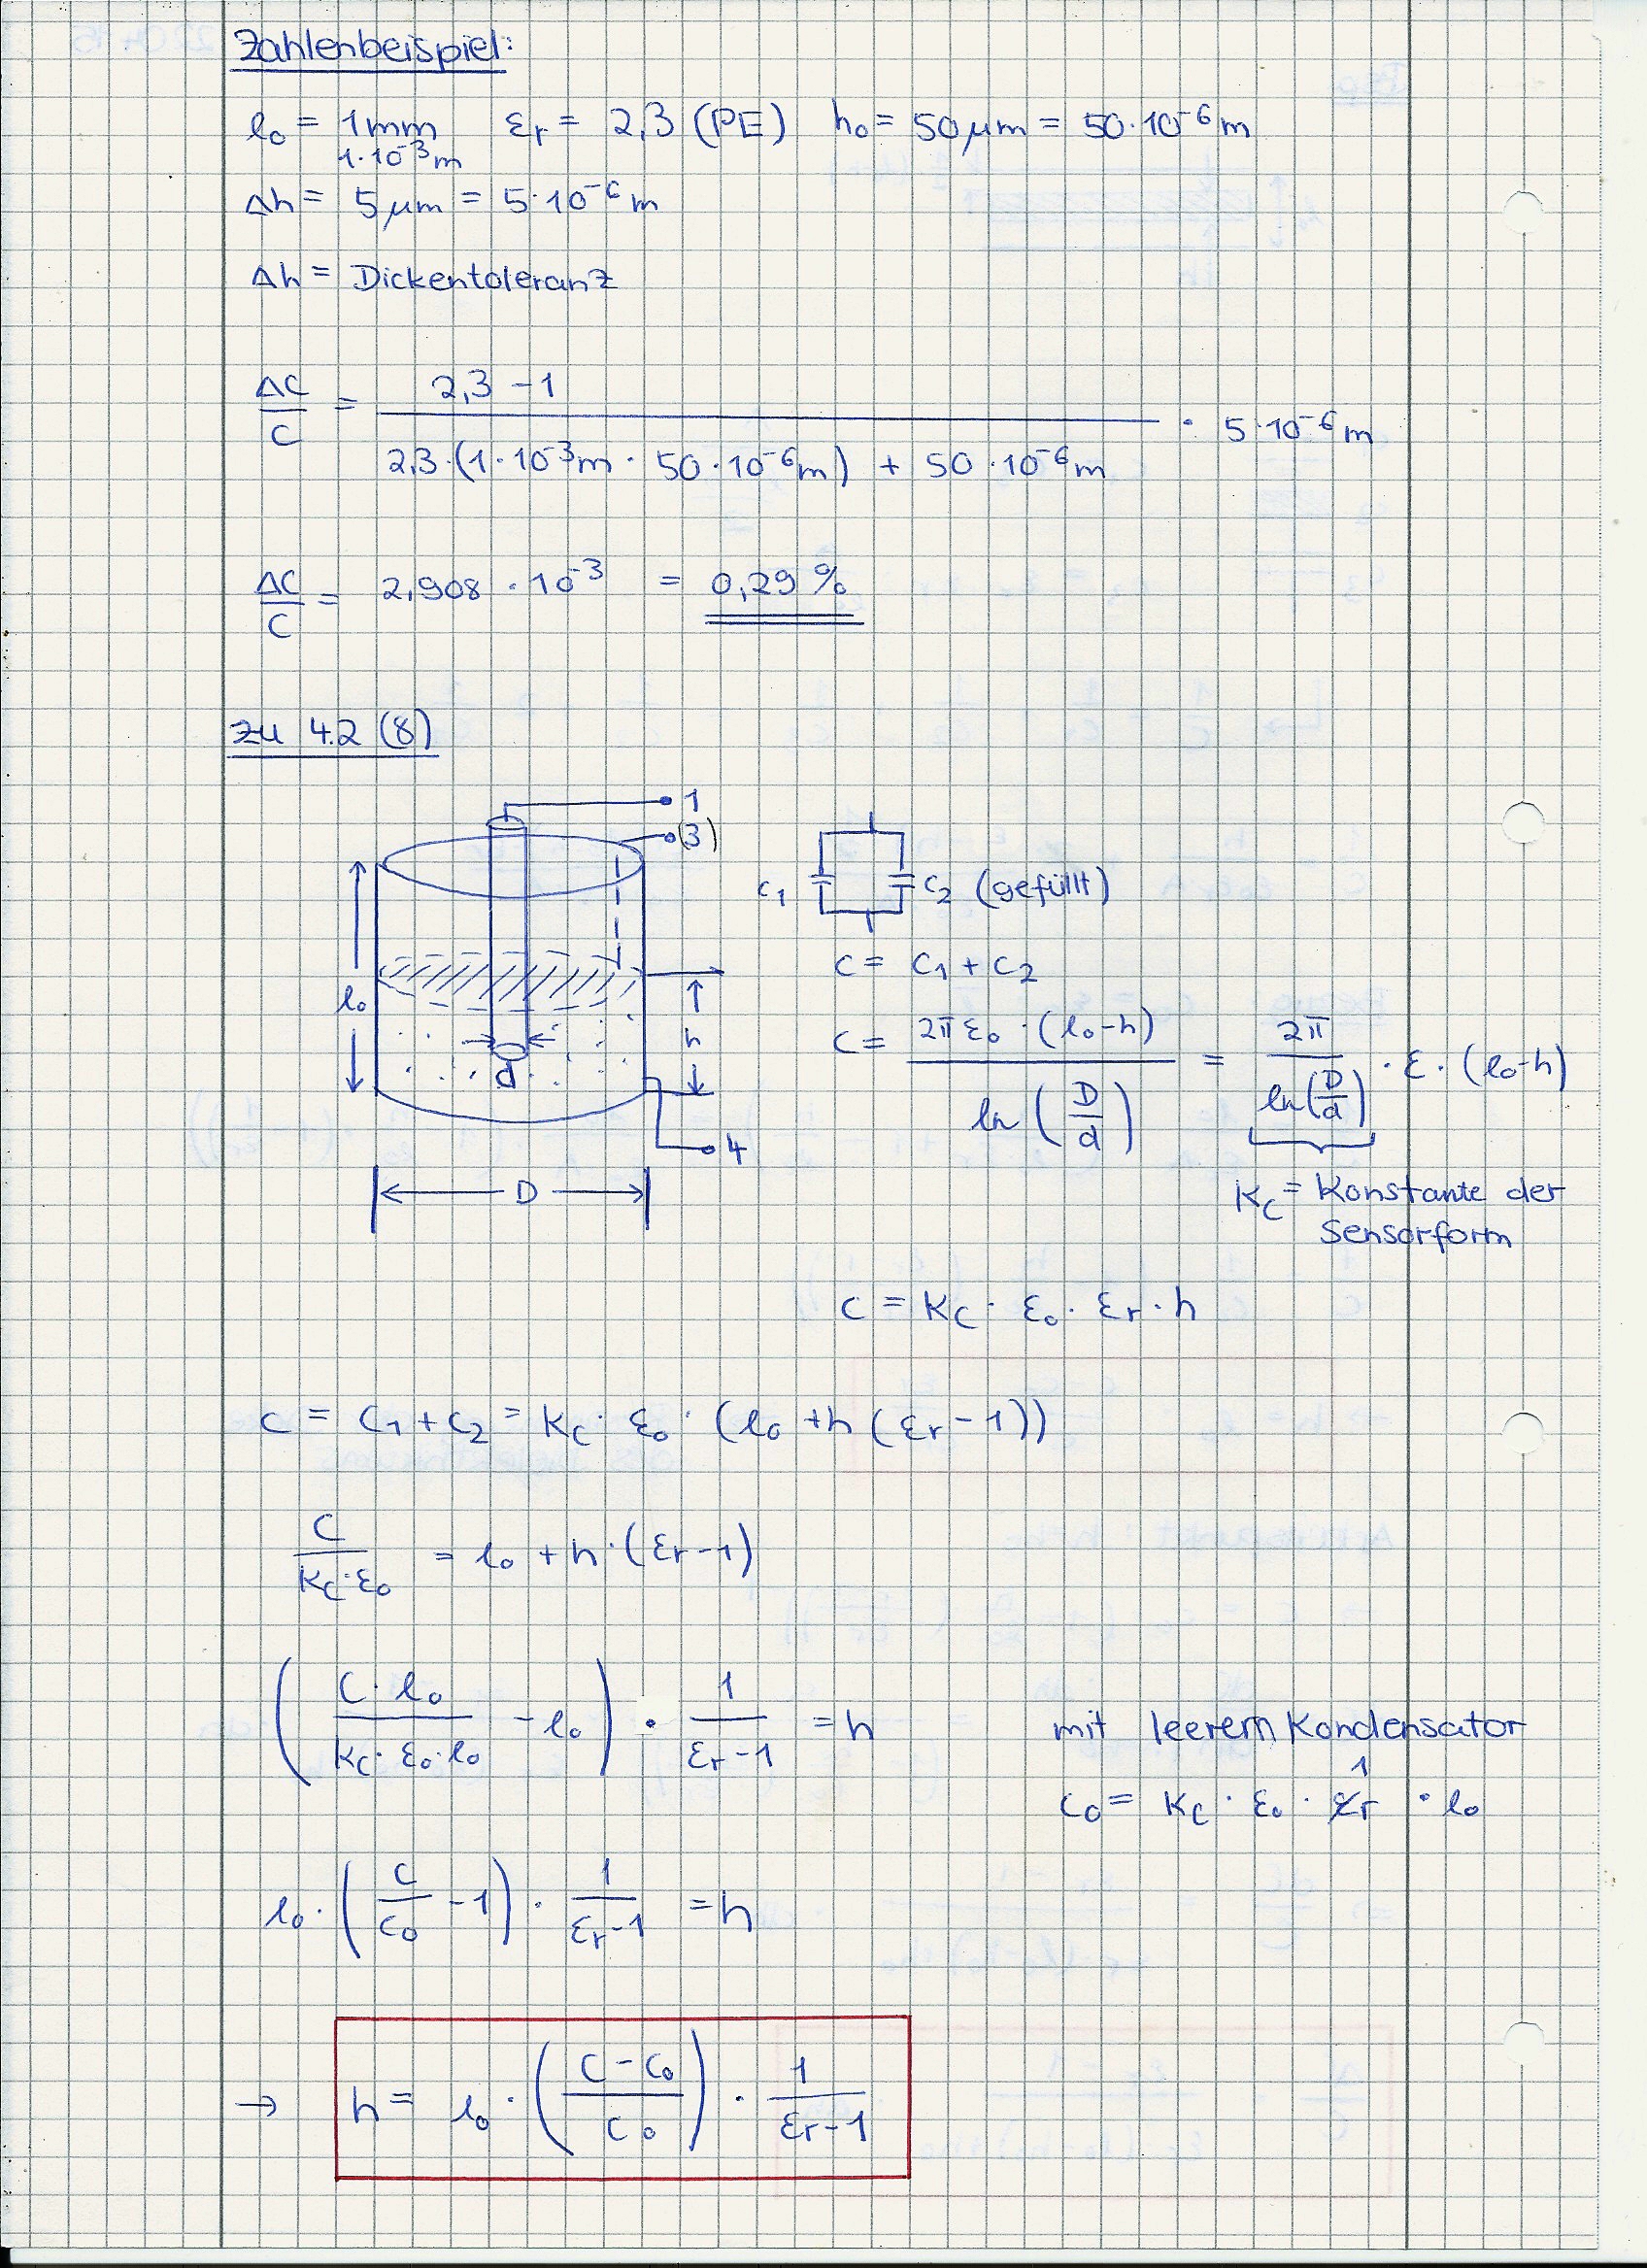 Zahlenbeispiel:
l₀ = 1mm   εr = 2,3 (PE)   h₀ = 50µm = 50·10⁻⁶m
1·10⁻³m
Δh = 5µm = 5·10⁻⁶m
Δh = Dickentoleranz
ΔC/C = (2,3 − 1)/(2,3·(1·10⁻³m · 50·10⁻⁶m) + 50·10⁻⁶m) · 5·10⁻⁶m
ΔC/C = 2,908 · 10⁻³ = 0,29 %
zu 4.2 (8)
1
(3)
l₀
h
d
4
D
C₁   C₂ (gefüllt)
C = C₁ + C₂
C = (2π ε₀ · (l₀−h))/(ln (D/d)) = 2π/(ln(D/d)) · ε · (l₀−h)
K_C = Konstante der
Sensorform
C = K_C · ε₀ · εr · h
C = C₁ + C₂ = K_C · ε₀ · (l₀ + h (εr − 1))
C/(K_C · ε₀) = l₀ + h · (εr−1)
((C · l₀)/(K_C · ε₀ · l₀) − l₀) · 1/(εr−1) = h   mit leerem Kondensator
1
C₀ = K_C · ε₀ · εr · l₀
l₀ · (C/C₀ − 1) · 1/(εr−1) = h
→ h = l₀ · ((C − C₀)/C₀) · 1/(εr−1)